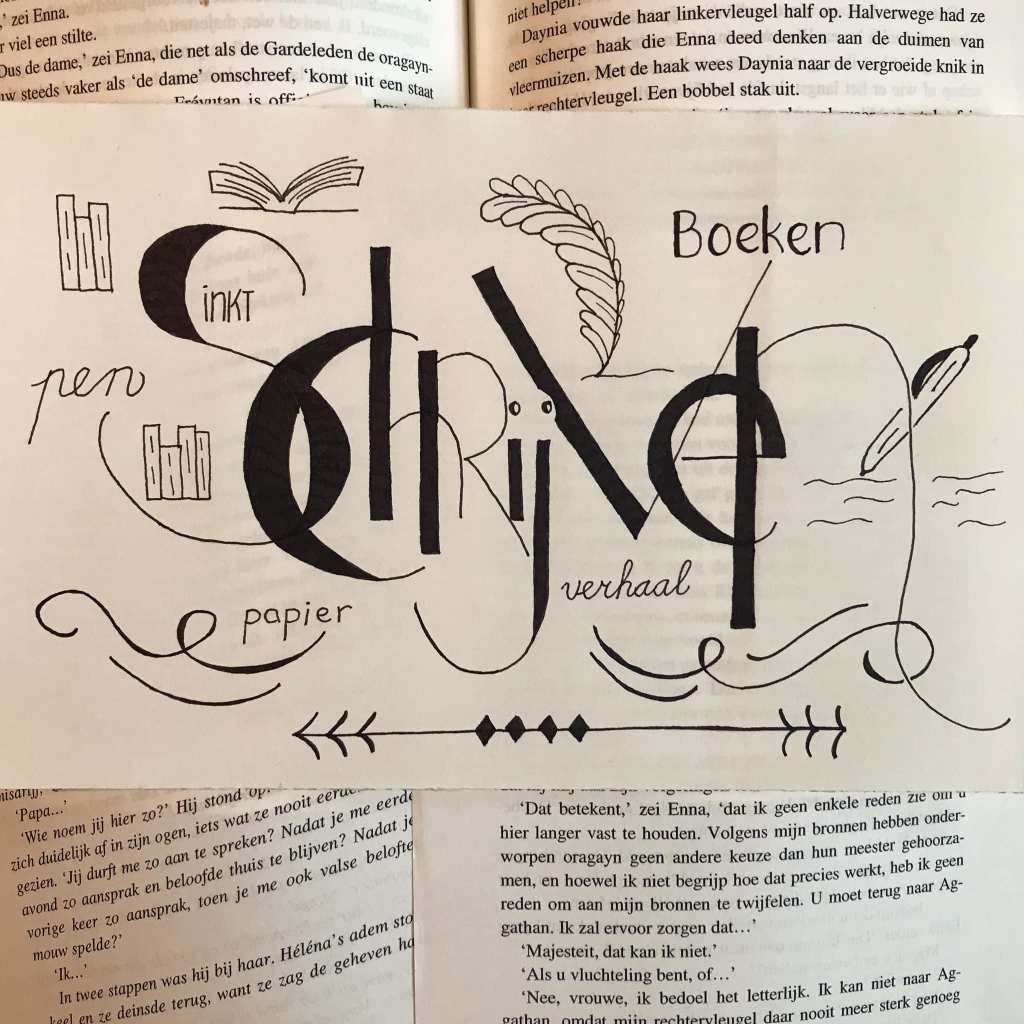 ,’ zei Enna.
r viel een stilte.
Dus de dame,’ zei Enna, die net als de Gardeleden de oragayn-
uw steeds vaker als ‘de dame’ omschreef, ‘komt uit een staat
niet helpen!
Daynia vouwde haar linkervleugel half op. Halverwege had ze
een scherpe haak die Enna deed denken aan de duimen van
vleermuizen. Met de haak wees Daynia naar de vergroeide knik in
rechtervleugel. Een bobbel stak uit.
Boeken
inkt
pen
Schrijver
verhaal
papier
‘Papa…’
‘Wie noem jij hier zo?’ Hij stond op.
zich duidelijk af in zijn ogen, iets wat ze nooit
gezien. ‘Jij durft me zo aan te spreken? Nadat je me eerde
avond zo aansprak en beloofde thuis te blijven? Nadat je
vorige keer zo aansprak, toen je me ook valse belofte
mouw spelde?’
‘Ik…’
In twee stappen was hij bij haar. Héléna’s adem sto
keel en ze deinsde terug, want ze zag de geheven ha
‘Dat betekent,’ zei Enna, ‘dat ik geen enkele reden zie om u
hier langer vast te houden. Volgens mijn bronnen hebben onder-
worpen oragayn geen andere keuze dan hun meester gehoorza-
men, en hoewel ik niet begrijp hoe dat precies werkt, heb ik geen
reden om aan mijn bronnen te twijfelen. U moet terug naar Ag-
gathan. Ik zal ervoor zorgen dat…’
‘Majesteit, dat kan ik niet.’
‘Als u vluchteling bent, of…’
‘Nee, vrouwe, ik bedoel het letterlijk. Ik kan niet naar Ag-
gathan, omdat mijn rechtervleugel daar nooit meer sterk genoeg